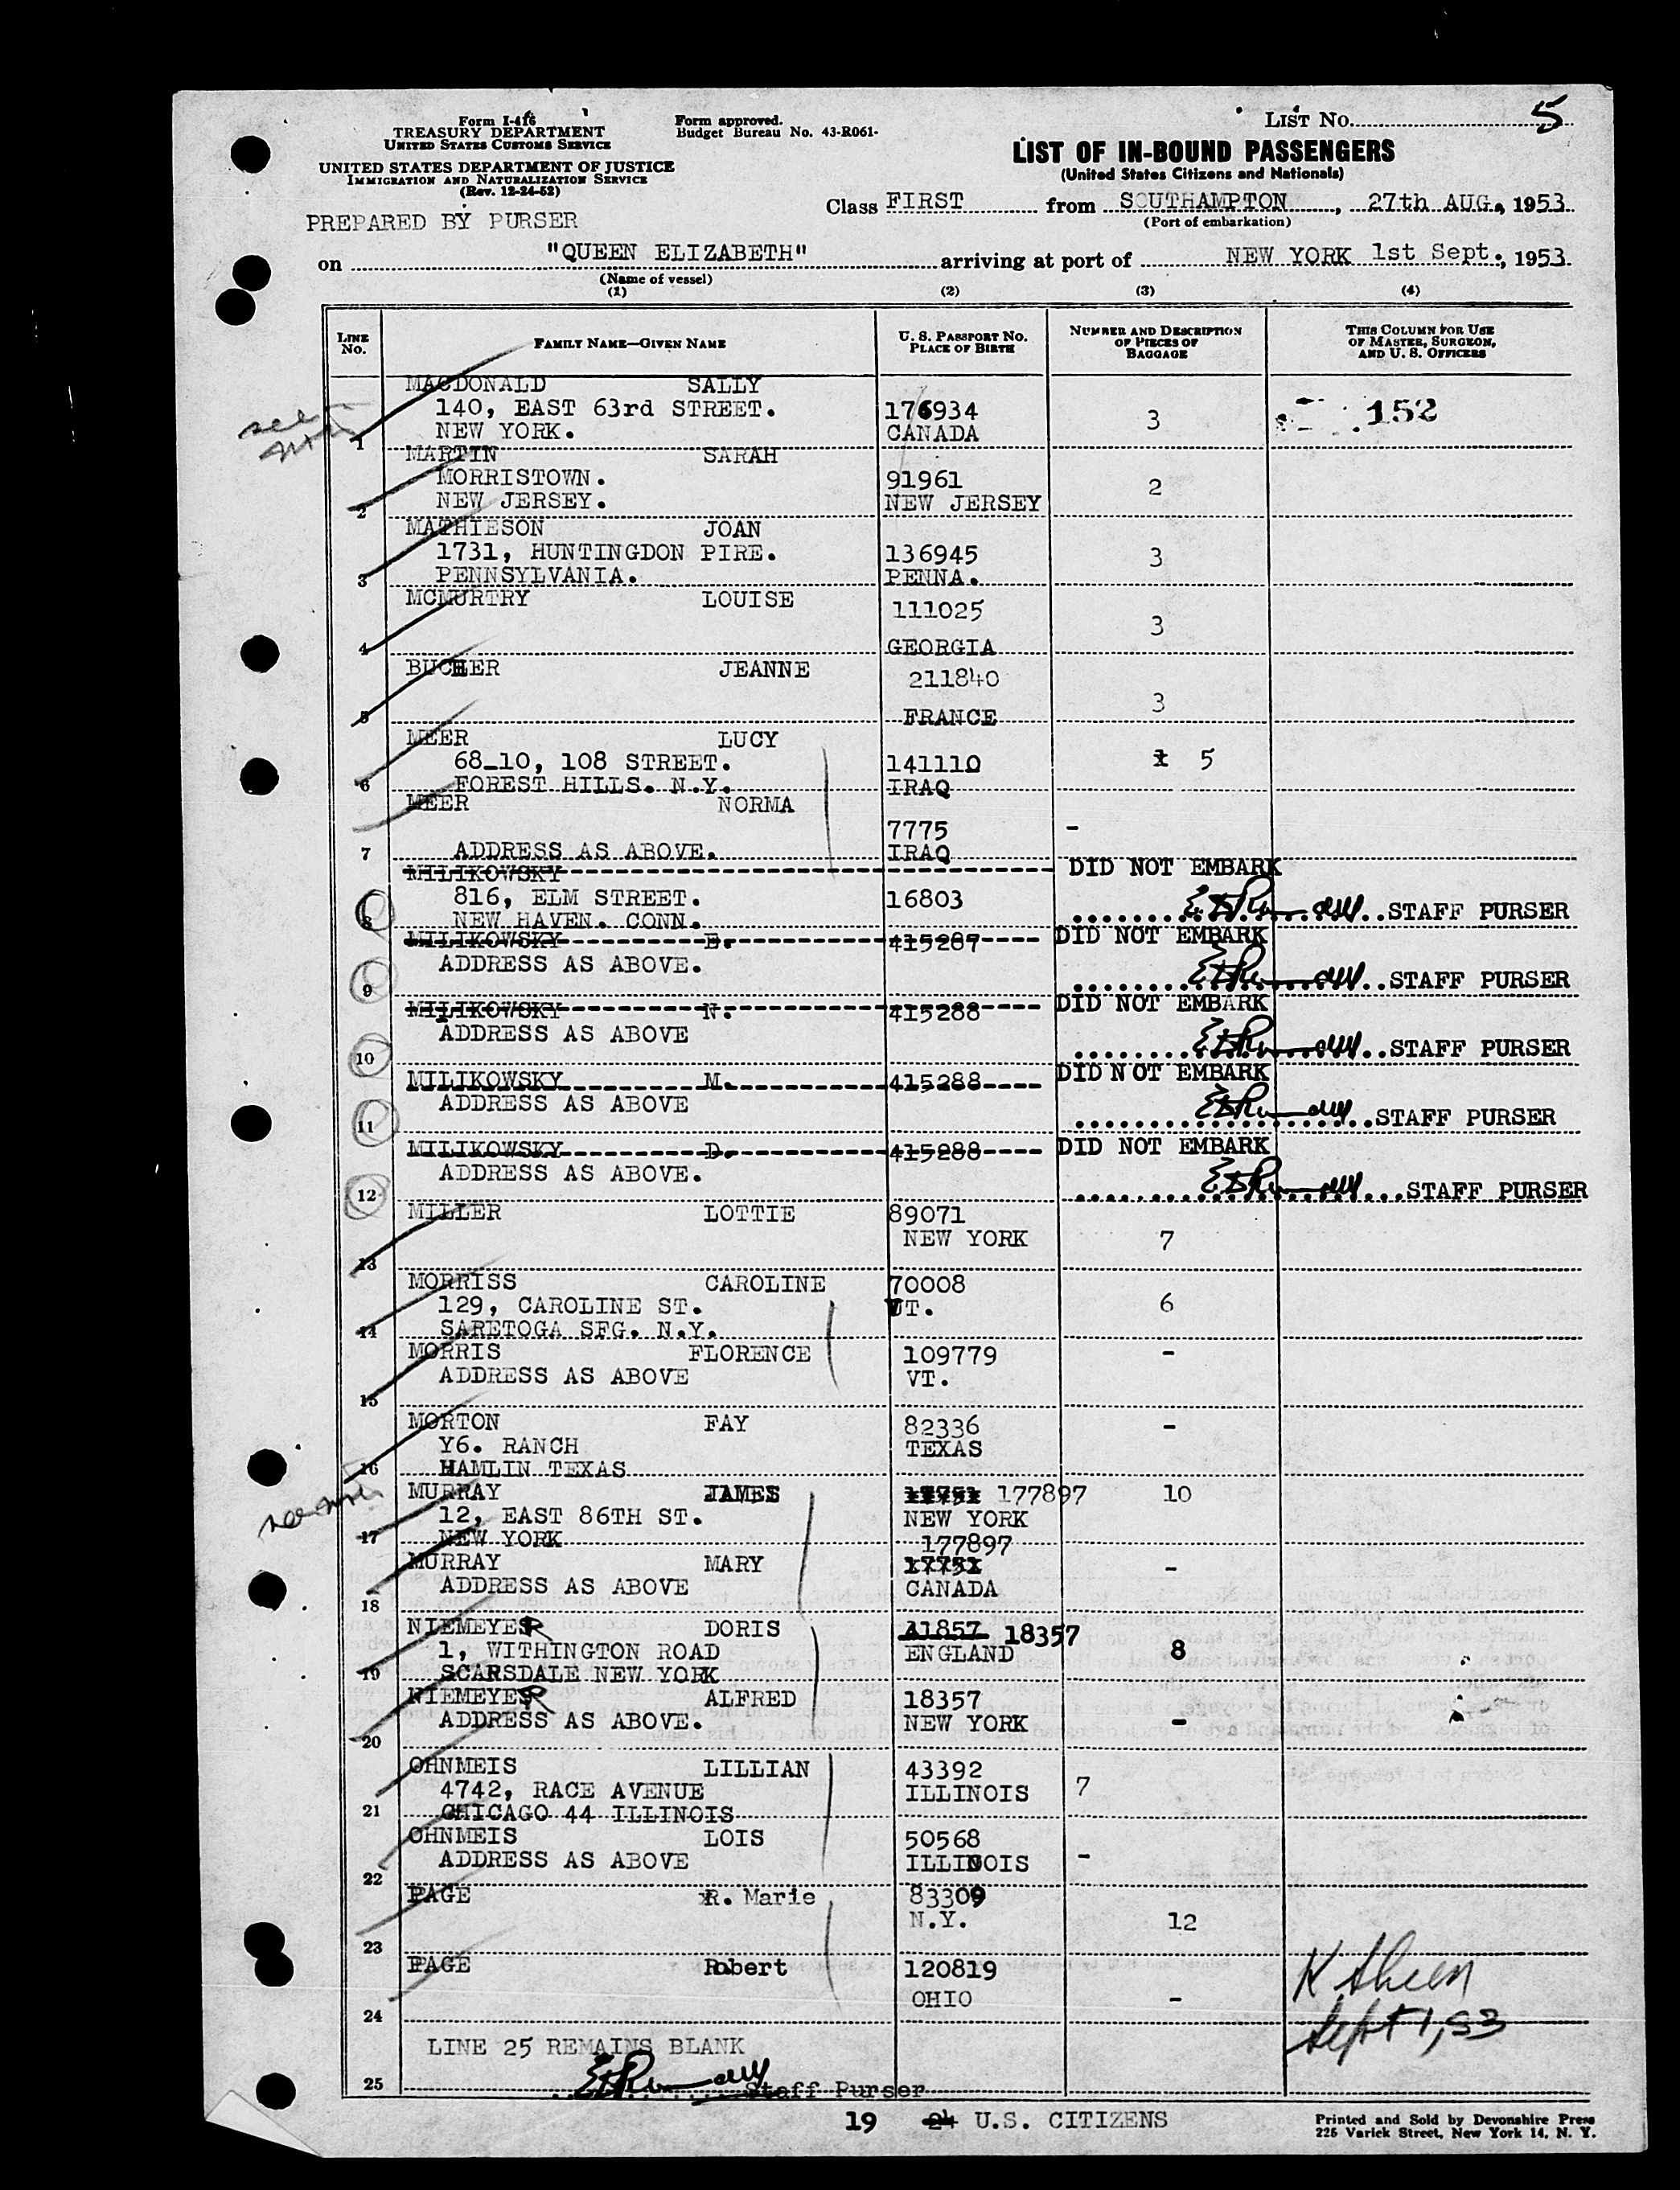 Form I-416
TREASURY DEPARTMENT
UNITED STATES CUSTOMS SERVICE
UNITED STATES DEPARTMENT OF JUSTICE
IMMIGRATION AND NATURALIZATION SERVICE
(Rev. 12-24-52)
PREPARED BY PURSER
Form approved.
Budget Bureau No. 43-R061-
LIST NO. 5
LIST OF IN-BOUND PASSENGERS
(United States Citizens and Nationals)
Class FIRST from SOUTHAMPTON, 27th AUG., 1953
(Port of embarkation)
on "QUEEN ELIZABETH" arriving at port of NEW YORK 1st Sept., 1953
(Name of vessel)
(1) (2) (3) (4)
LINE NO. FAMILY NAME—GIVEN NAME U. S. PASSPORT NO. PLACE OF BIRTH NUMBER AND DESCRIPTION OF PIECES OF BAGGAGE THIS COLUMN FOR USE OF MASTER, SURGEON, AND U. S. OFFICERS
MACDONALD SALLY
140, EAST 63rd STREET. 176934 3 152
1 NEW YORK. CANADA
MARTIN SARAH
MORRISTOWN. 91961 2
2 NEW JERSEY. NEW JERSEY
MATHIESON JOAN
1731, HUNTINGDON PIRE. 136945 3
3 PENNSYLVANIA. PENNA.
MCMURTRY LOUISE 111025
3
4 GEORGIA
BUCHER JEANNE 211840
3
5 FRANCE
MEER LUCY
68-10, 108 STREET. 141110 5
6 FOREST HILLS. N.Y. IRAQ
MEER NORMA
7775 -
7 ADDRESS AS ABOVE. IRAQ
MILIKOWSKY DID NOT EMBARK
816, ELM STREET. 16803
8 NEW HAVEN. CONN. STAFF PURSER
MILIKOWSKY E. 415287 DID NOT EMBARK
ADDRESS AS ABOVE.
9 STAFF PURSER
MILIKOWSKY N. 415288 DID NOT EMBARK
ADDRESS AS ABOVE
10 STAFF PURSER
MILIKOWSKY M. 415288 DID NOT EMBARK
ADDRESS AS ABOVE
11 STAFF PURSER
MILIKOWSKY D. 415288 DID NOT EMBARK
ADDRESS AS ABOVE.
12 STAFF PURSER
MILLER LOTTIE 89071
NEW YORK 7
13
MORRISS CAROLINE 70008
129, CAROLINE ST. VT. 6
14 SARETOGA SFG. N.Y.
MORRIS FLORENCE 109779 -
ADDRESS AS ABOVE VT.
15
MORTON FAY 82336 -
Y6. RANCH TEXAS
16 HAMLIN TEXAS
MURRAY JAMES 17751 177897 10
12, EAST 86TH ST. NEW YORK
17 NEW YORK
177897
MURRAY MARY 17751 -
ADDRESS AS ABOVE CANADA
18
NIEMEYER DORIS 18357
1, WITHINGTON ROAD ENGLAND 8
19 SCARSDALE NEW YORK
NIEMEYER ALFRED 18357
ADDRESS AS ABOVE. NEW YORK -
20
OHNMEIS LILLIAN 43392
4742, RACE AVENUE ILLINOIS 7
21 CHICAGO 44 ILLINOIS
OHNMEIS LOIS 50568
ADDRESS AS ABOVE ILLINOIS -
22
PAGE R. Marie 83309
N.Y. 12
23
PAGE Robert 120819
OHIO -
24
Sept 1, 53
LINE 25 REMAINS BLANK
25 Staff Purser
19 24 U.S. CITIZENS
Printed and Sold by Devonshire Press
225 Varick Street, New York 14, N. Y.